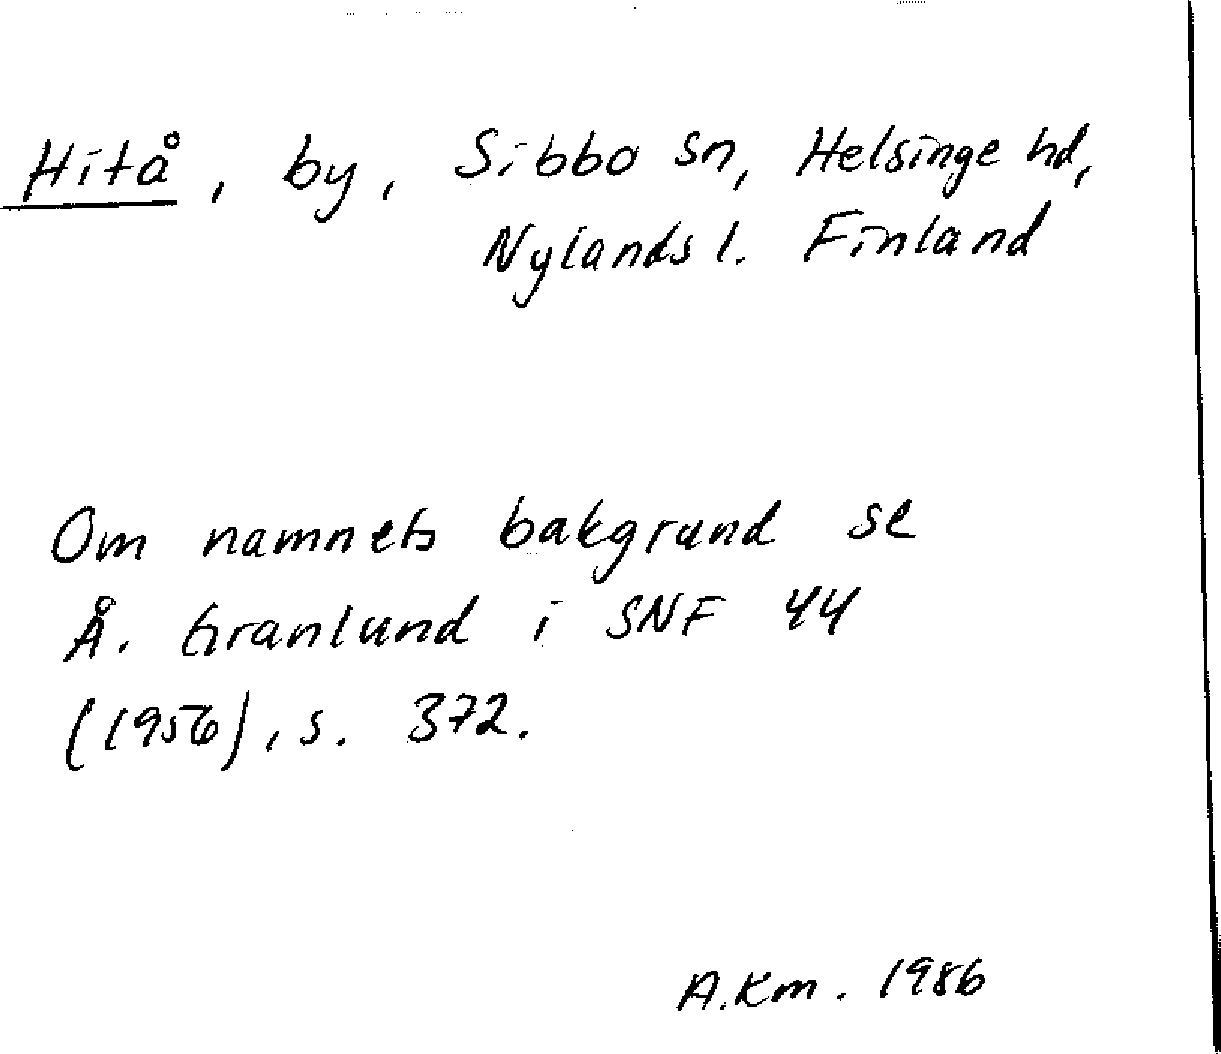 Hitå, by, Sibbo sn, Helsinge hd,
Nylands l. Finland
Om namnets bakgrund se
Å. Granlund i SNF 44
(1956), s. 372.
A.Km. 1986